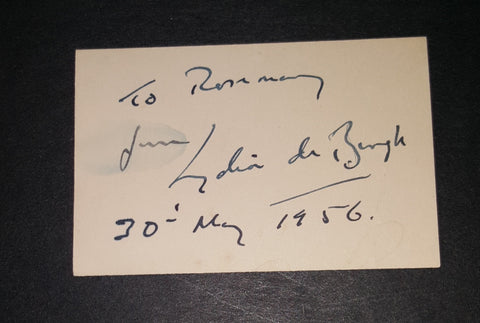 To Rosemary
from Lydia de Burgh
30th May 1956.